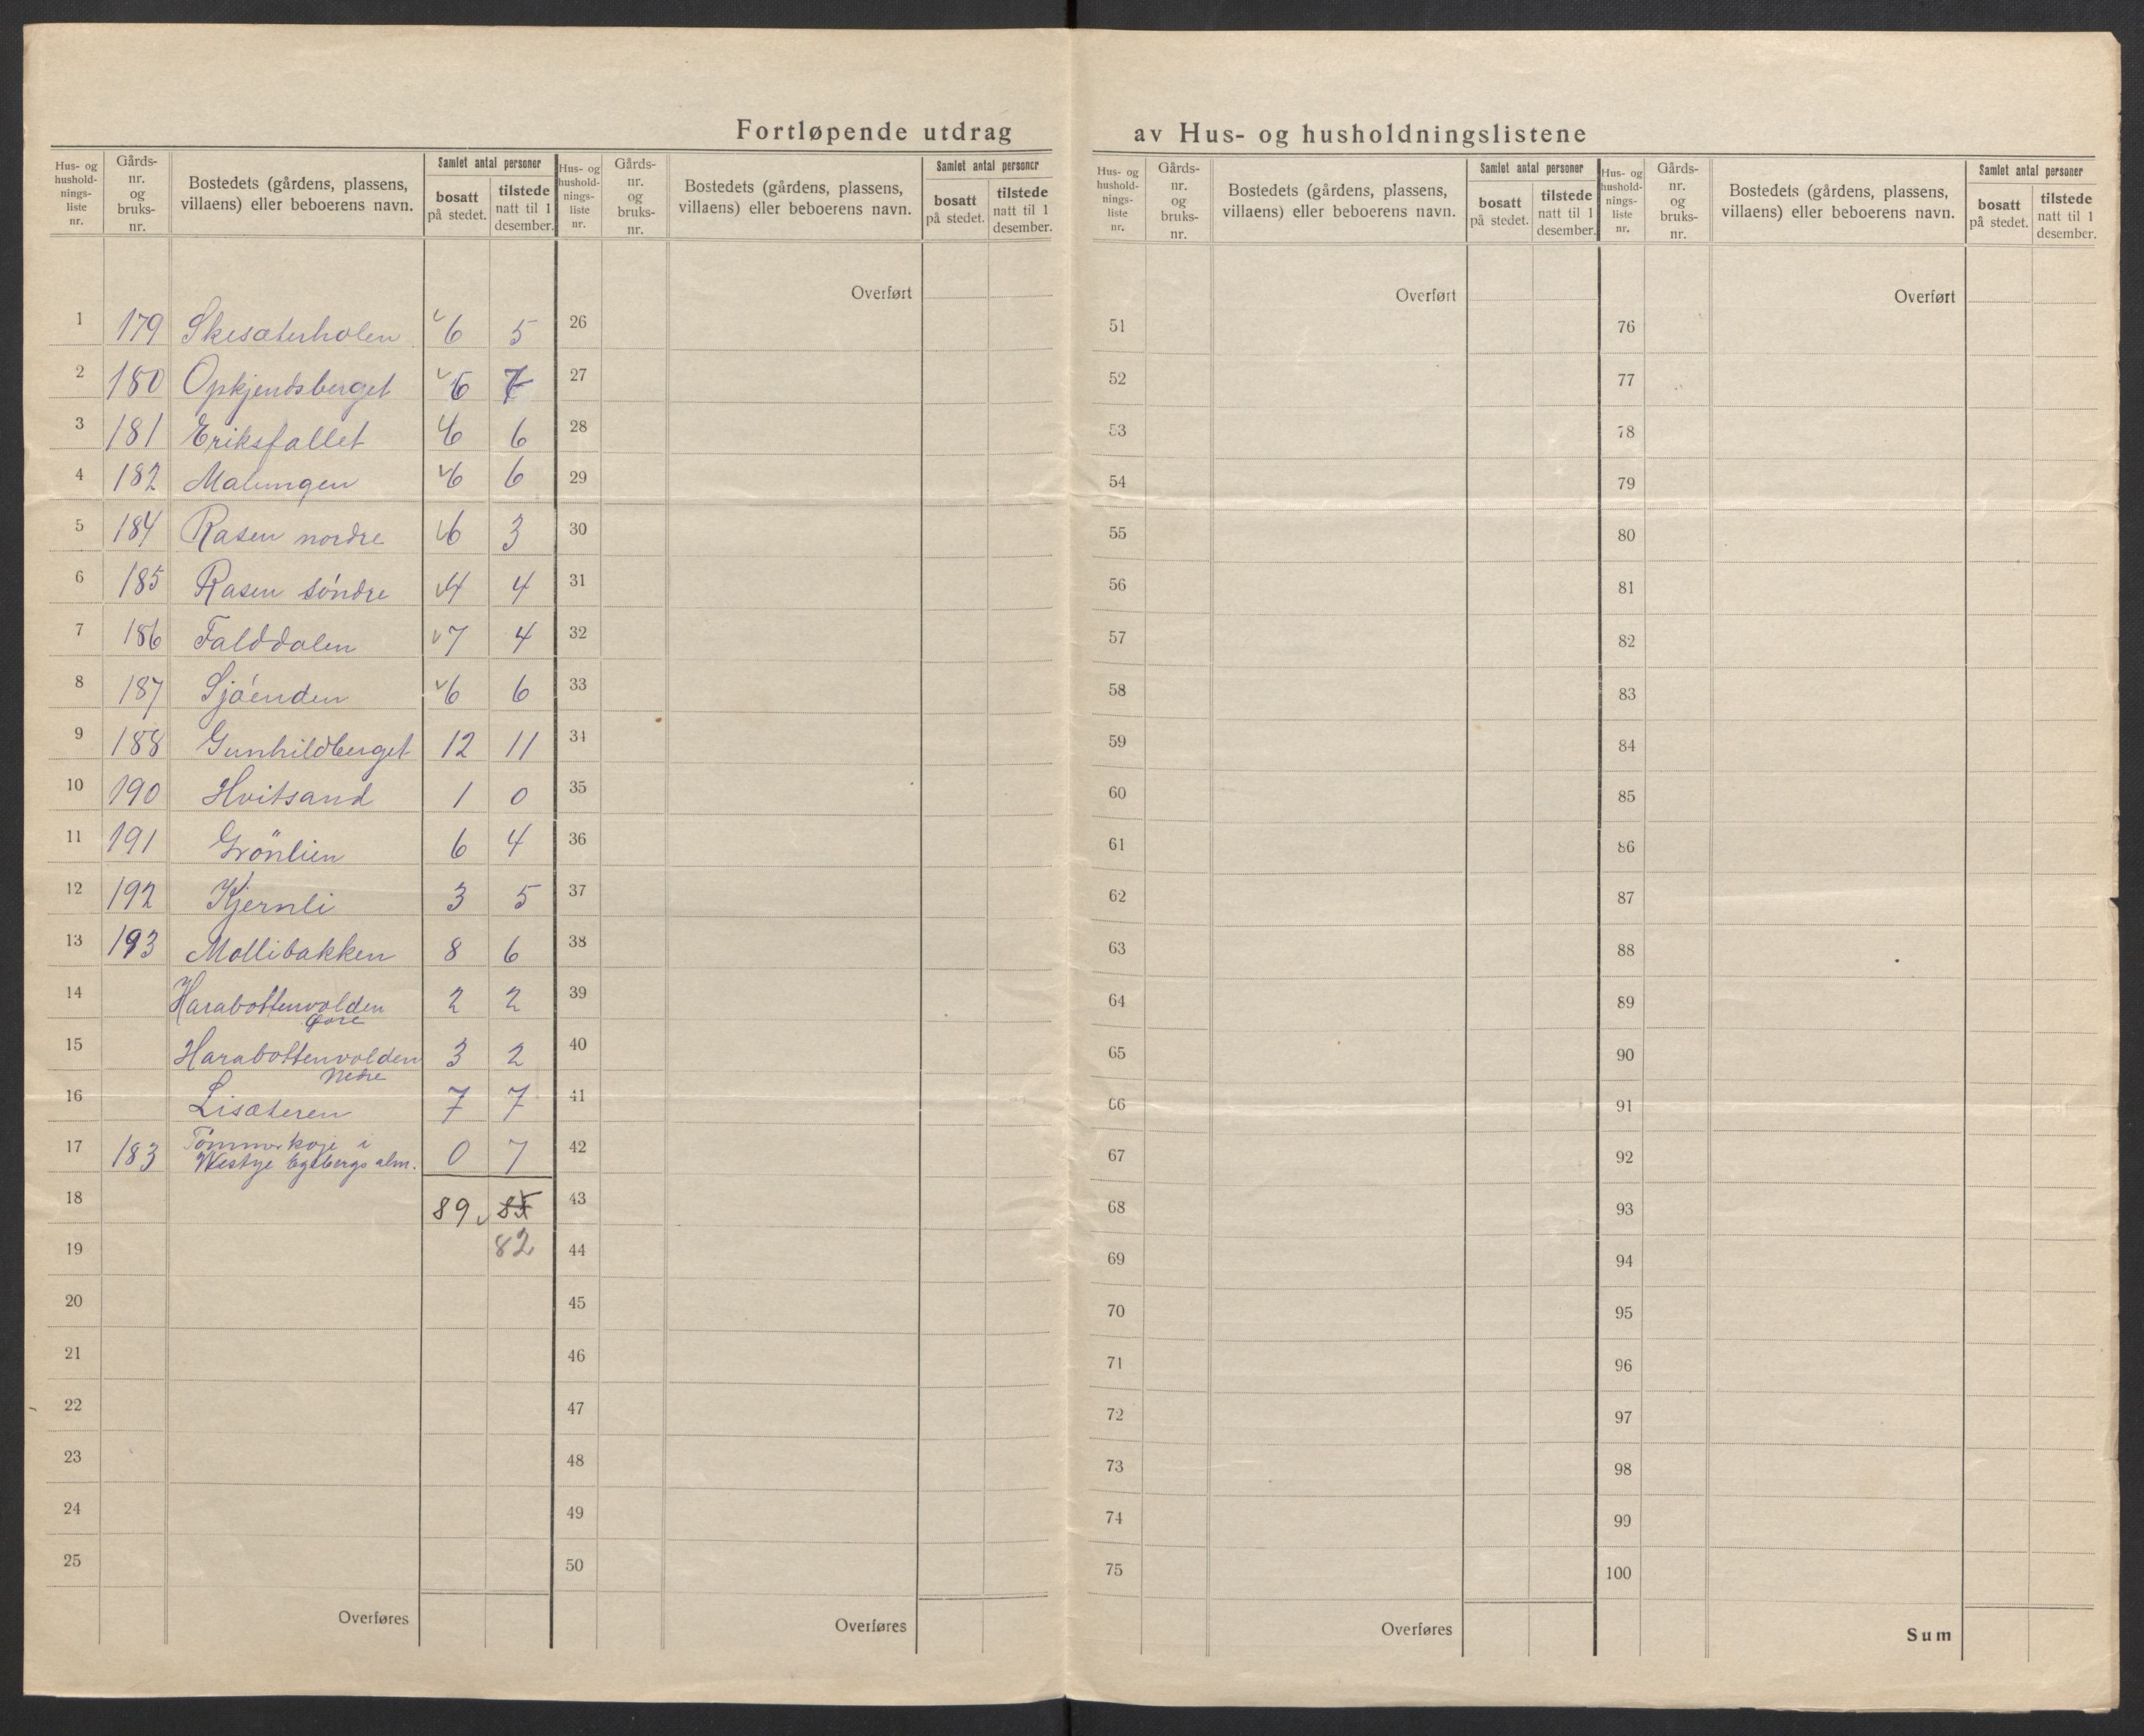 Fortløpende utdrag av Hus- og husholdningslistene
Hus- og husholdningsliste nr.
Gårds-nr. og bruks-nr.
Bostedets (gårdens, plassens, villaens) eller beboerens navn.
Samlet antal personer
bosatt på stedet.
tilstede natt til 1 desember.
Hus- og husholdningsliste nr.
Gårds-nr. og bruks-nr.
Bostedets (gårdens, plassens, villaens) eller beboerens navn.
Samlet antal personer
bosatt på stedet.
tilstede natt til 1 desember.
Hus- og husholdningsliste nr.
Gårds-nr. og bruks-nr.
Bostedets (gårdens, plassens, villaens) eller beboerens navn.
Samlet antal personer
bosatt på stedet.
tilstede natt til 1 desember.
Hus- og husholdningsliste nr.
Gårds-nr. og bruks-nr.
Bostedets (gårdens, plassens, villaens) eller beboerens navn.
Samlet antal personer
bosatt på stedet.
tilstede natt til 1 desember.
Overført Overført Overført
1 179 Skesæterholen 6 5 26 51 76
2 180 Opkjendsberget 6 7 27 52 77
3 181 Eriksfallet 6 6 28 53 78
4 182 Malungen 6 6 29 54 79
5 184 Rasen nordre 6 3 30 55 80
6 185 Rasen söndre 4 4 31 56 81
7 186 Falddalen 7 4 32 57 82
8 187 Sjöenden 6 6 33 58 83
9 188 Gunhildberget 12 11 34 59 84
10 190 Hvitsand 1 0 35 60 85
11 191 Grönlien 6 4 36 61 86
12 192 Kjernli 3 5 37 62 87
13 193 Mollibakken 8 6 38 63 88
14 Harabottenvolden 2 2 39 64 89
15 Harabottenvolden 3 2 40 65 90
Nedre
16 Lisæteren 7 7 41 66 91
17 183 Tömmerkoje i 0 7 42 67 92
Westye Egebergs alm.
18 89 85 43 68 93
19 82 44 69 94
20 45 70 95
21 46 71 96
22 47 72 97
23 48 73 98
24 49 74 99
25 50 75 100
Overføres Overføres Overføres Sum